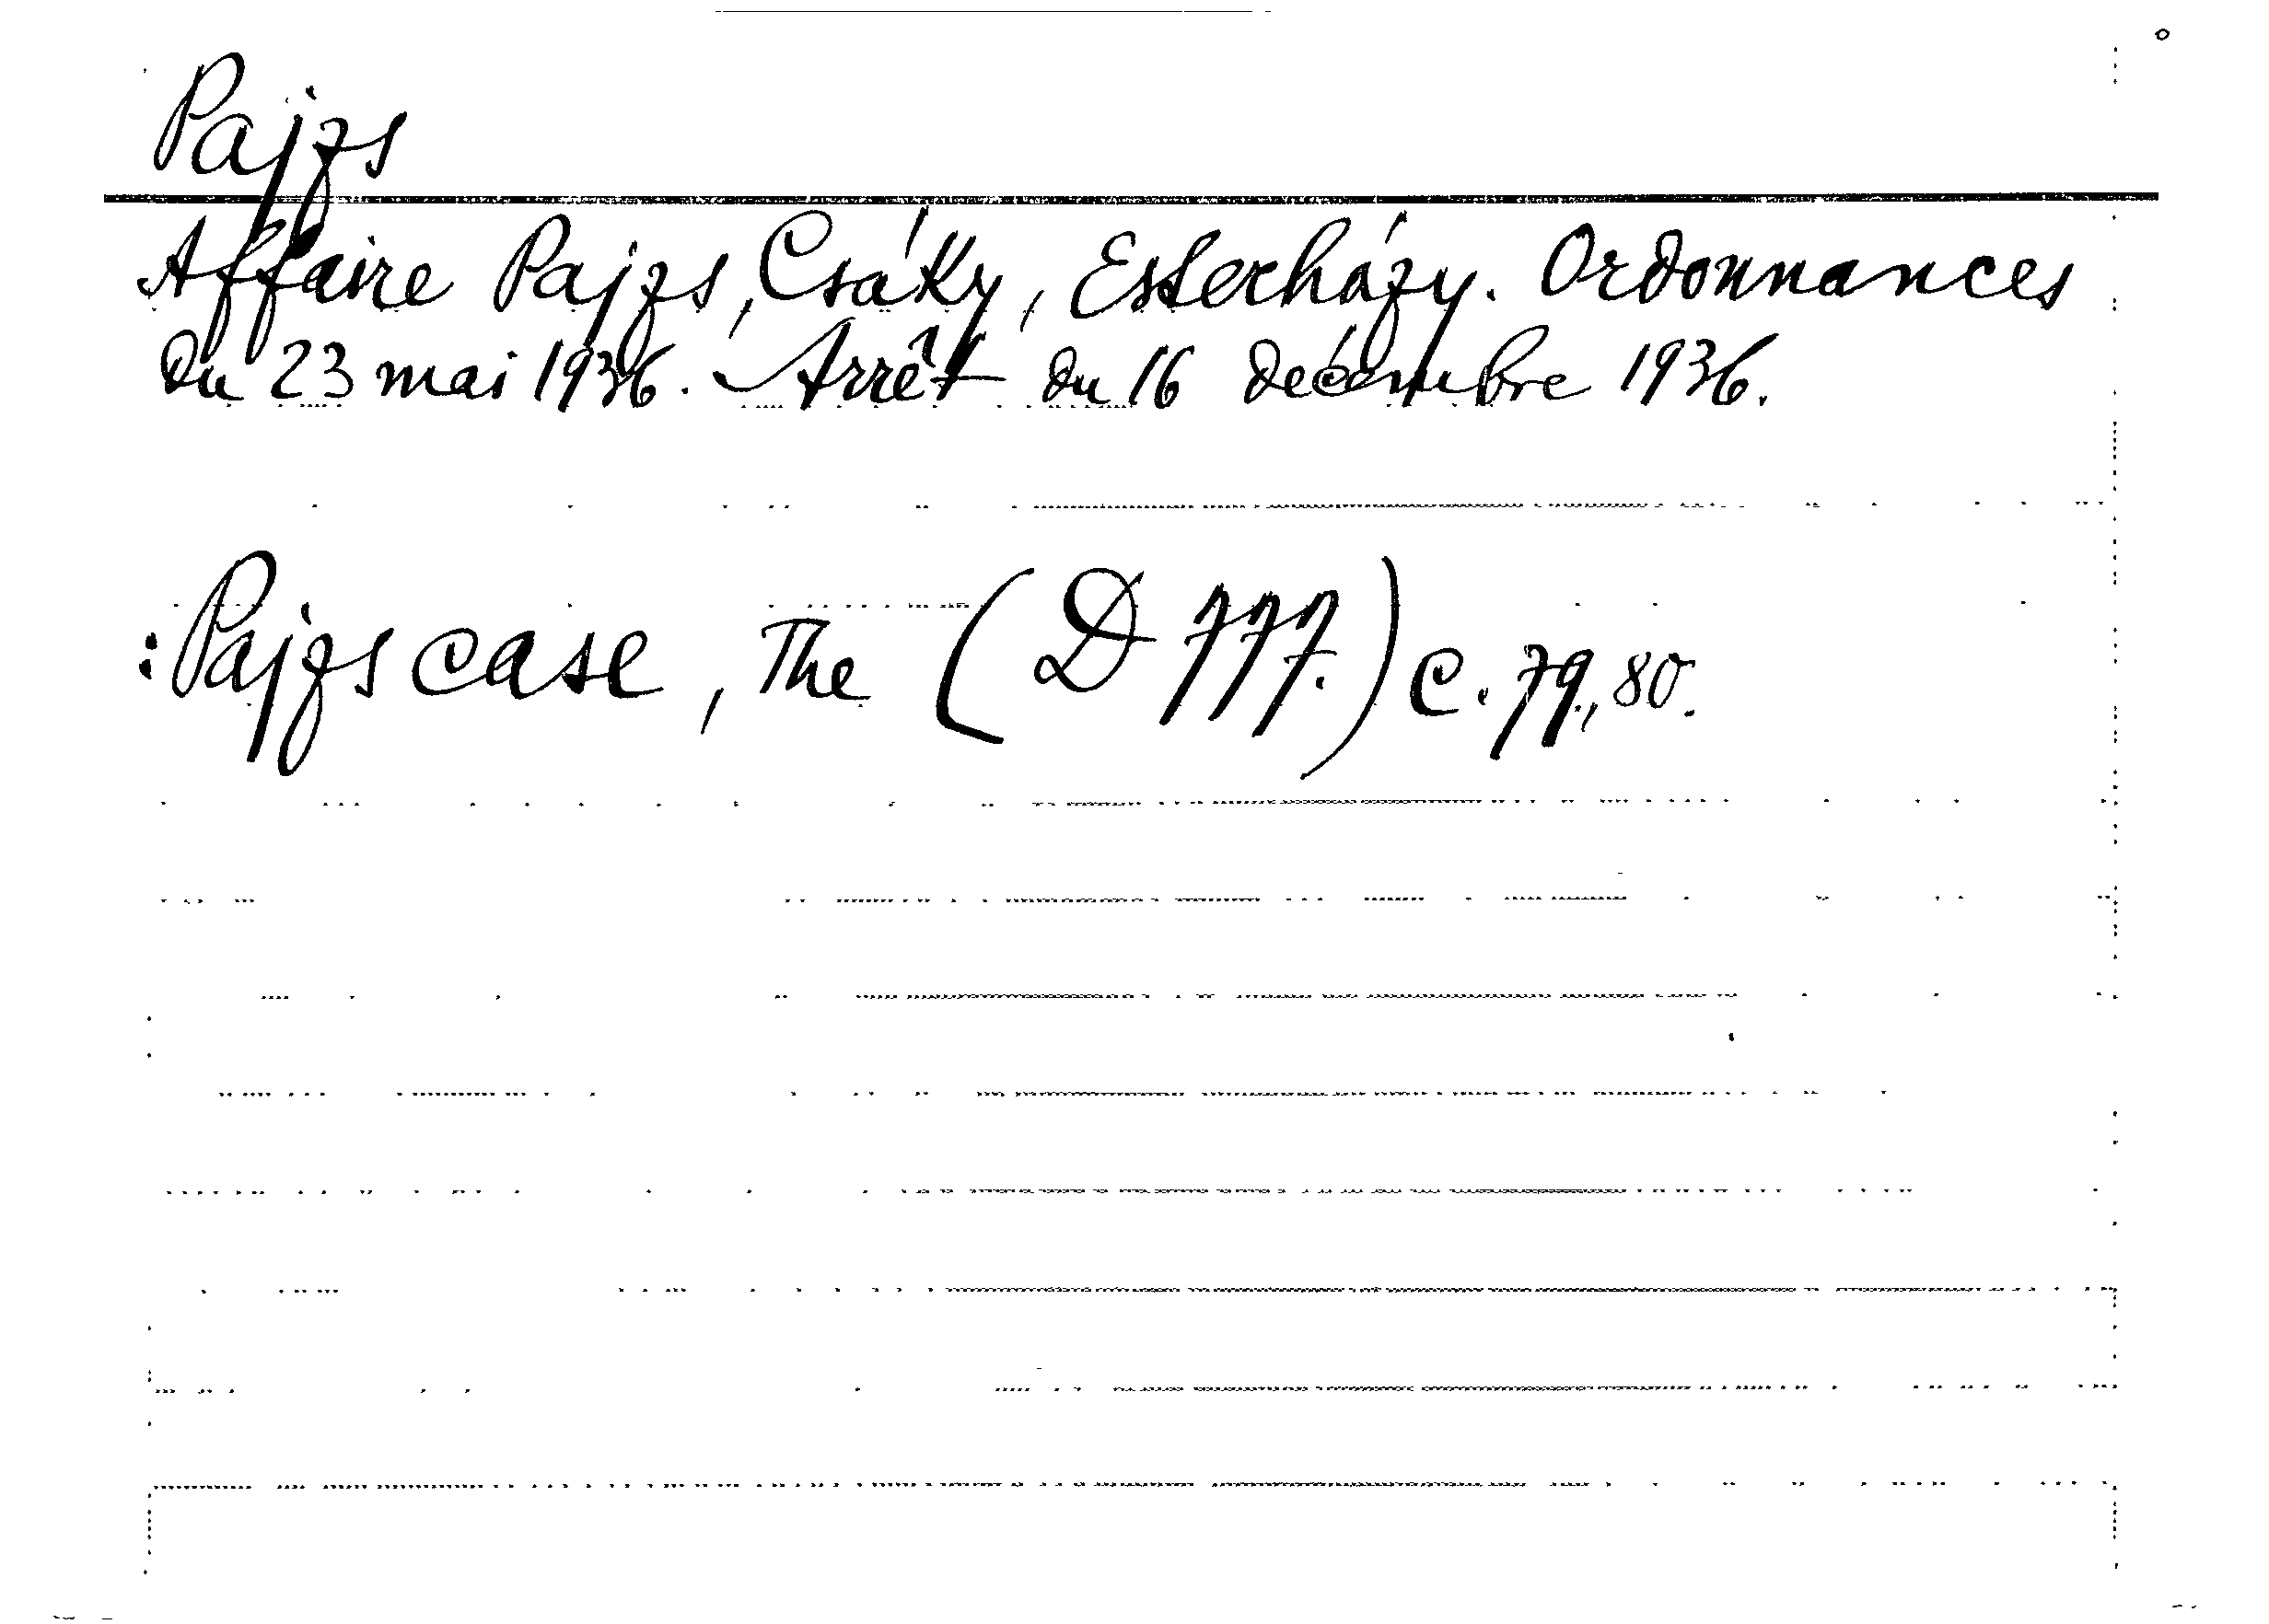 Pajzs
Affaire Pajzs, Csáky, Esterházy. Ordonnances
du 23 mai 1936. Arrêt du 16 décembre 1936.
: Pajzs case, The (D 777.) C. 79, 80.